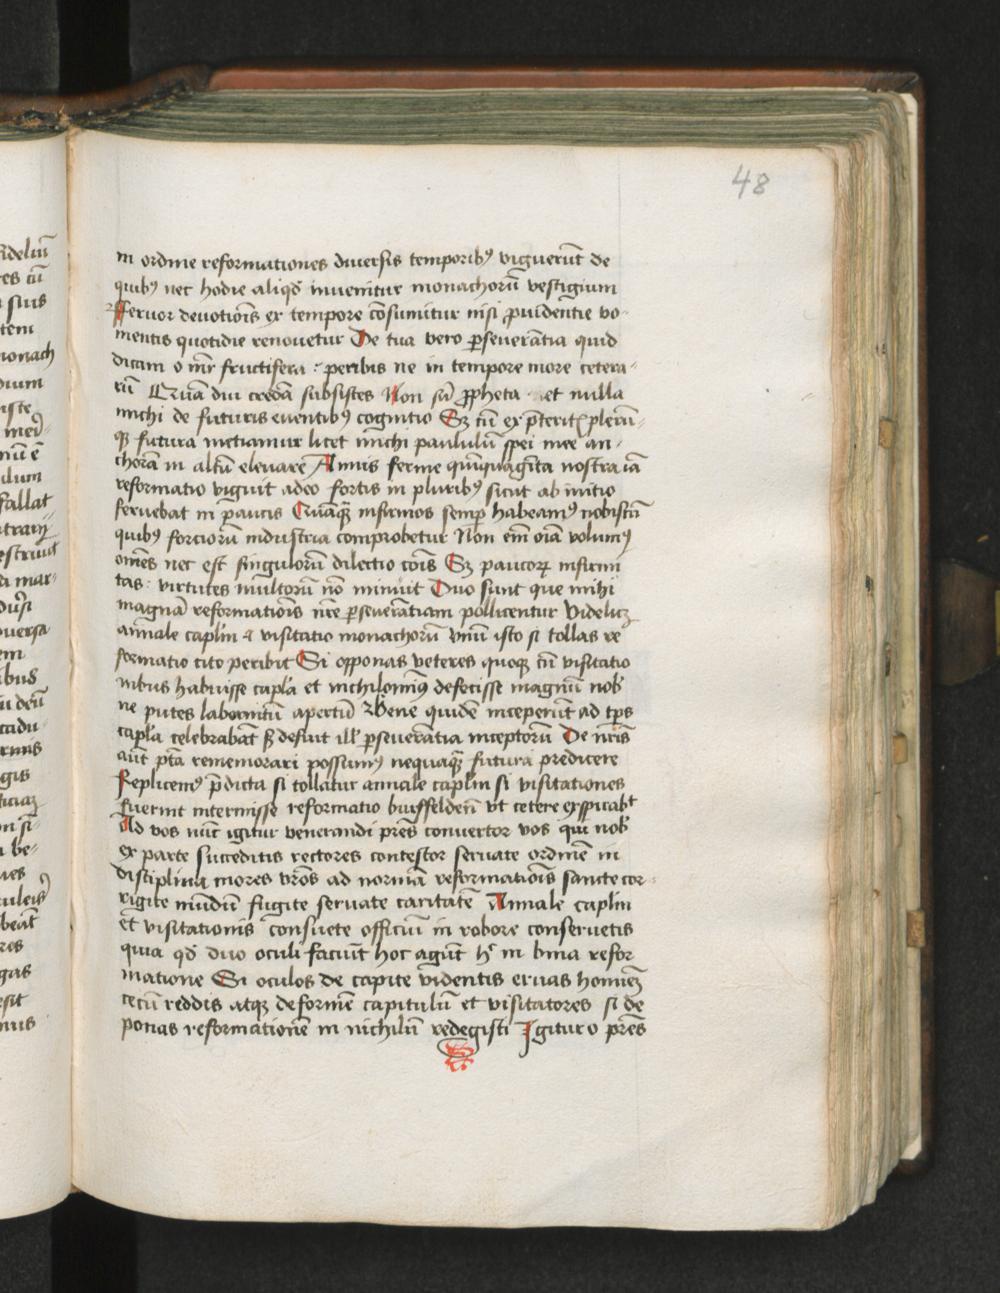 48
in ordine reformationes diuersis temporibꝰ viguerūt de
quibꝰ nec hodie aliqd̄ inuenitur monachorū vestigium
fferuor deuotiōis ex tempore cōsumitur nisi ꝓuidentie vo
mentis quotidie renouetur De tua vero ꝑseuerātia quid
dicam o mr̄ fructifera : peribis ne in tempore more cetera-
rū Quādiu credā subsistes Non sū ꝓpheta et nulla
michi de futuris euentibꝰ cognitio Sꝫ cū ex p̄teritꝭ plerū-
qꝫ futura metiamur licet michi paululū spei mee an-
chorā in altū eleuare Annis ferme quīquagīta nostra iā
reformatio viguit adeo fortis in pluribꝰ sicut ab initio
feruebat in paucis Quāqꝫ infirmos semꝑ habeamꝰ nobiscū
quibꝰ forciorū industria comprobetur Non em̄ oīa volumꝰ
omēs nec est singulorū dilectio cōis Sꝫ paucoꝝ infirmi
tas : virtutes multorū nō minuit Duo sunt que mihi
magnā reformatiōis nr̄e ꝑseuerātiam pollicentur videlicꝫ
annale caplm̄ & visitatio monachorū vnū isto si tollas re
formatio cito peribit Si opponas veteres quoqꝫ cū visitatio
nibus habuisse capl̄a et nichilominꝰ defecisse magnū nob̄
ne putes laborintū apertū Bene quidē inceperūt ad tp̄s
capl̄a celebrabāt sꝫ defuit ill̄ ꝑseuerātia inceptorū De nr̄is
aūt p̄ta rememorari possumꝰ nequaqꝫ futura predicere
Replicemꝰ p̄dicta si tollatur annale caplm̄ si visitationes
fuerint intermisse reformatio bursfelden̄ vt cetere expirabt
Ad vos nūc igitur venerandi prēs conuertor vos qui nob̄
ex parte succeditis rectores contestor seruate ordinē in
disciplina mores vr̄os ad normā reformatiōis sancte cor-
rigite mūdū fugite seruate caritatē Annale caplm̄
et visitationis consuete officiū in robore conseruetis
quia qd̄ duo oculi faciūt hoc agūt h̄ in bina refor
matione Si oculos de capite videntis eruas hominē
cecū reddis atqꝫ deformē capitulū et visitatores si de
ponas reformationē in nichilū redegisti Igitur o prēs